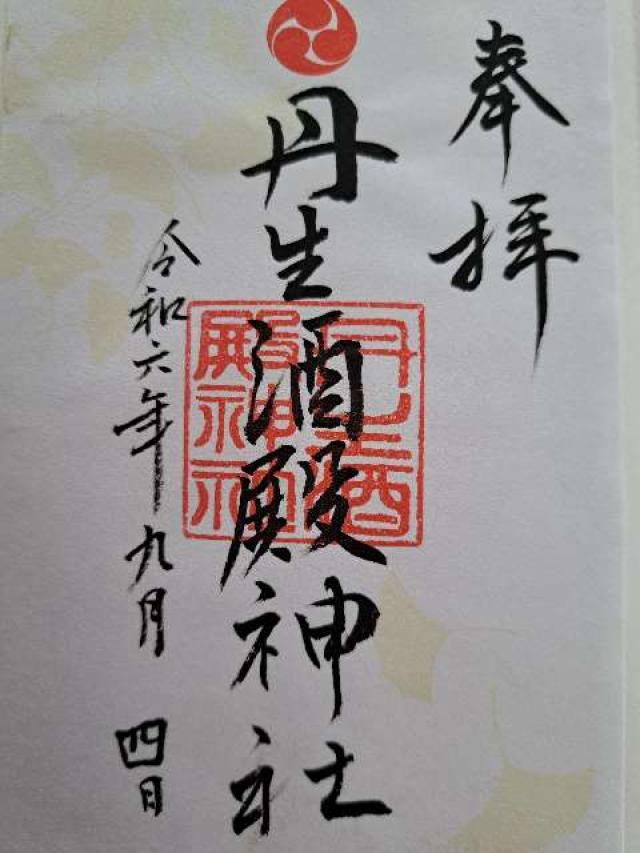 奉拝
丹生酒殿神社
丹生酒
殿神社
令和六年九月四日